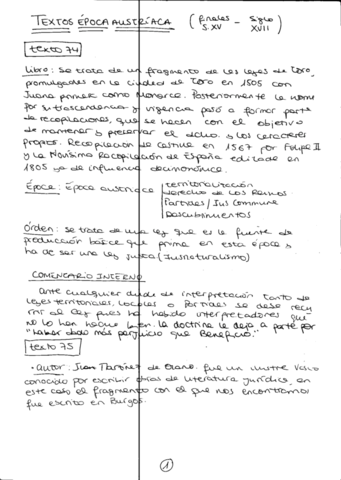 TEXTOS ÉPOCA AUSTRÍACA (finales S.XV - Siglo XVII)
texto 74
Libro: Se trata de un fragmento de las leyes de Toro,
promulgadas en la ciudad de Toro en 1505 con
Juana primera como Monarca. Posteriormente la norma
por su trascendencia y vigencia pasó a formar parte
de recopilaciones, que se hacen con el objetivo
de mantener y preservar el dcho. y los caracteres
propios. Recopilación de Castilla en 1567 por Felipe II
y la Novísima Recopilación de España editada en
1805 ya de influencia decimonónica.
Época: Época austriaca
territorialización
Derecho de los Reinos
Partidas / Ius Commune
Descubrimientos
Órden: se trata de una ley que es la fuente de
producción básica que prima en esta época y
ha de ser una ley justa (Iusnaturalismo)
COMENTARIO INTERNO
Ante cualquier duda de interpretación tanto de
leyes territoriales, locales o Partidas se debe recu
rrir al Rey pues ha habido interpretadores que
no lo han hecho bien. la doctrina le deja a parte por
"haber dado más perjuicio que Beneficio."
texto 75
• Autor: Juan Martínez de Olano. fue un ilustre vasco
conocido por escribir obras de literatura jurídica, en
este caso el fragmento con el que nos encontramos
fue escrito en Burgos.
1